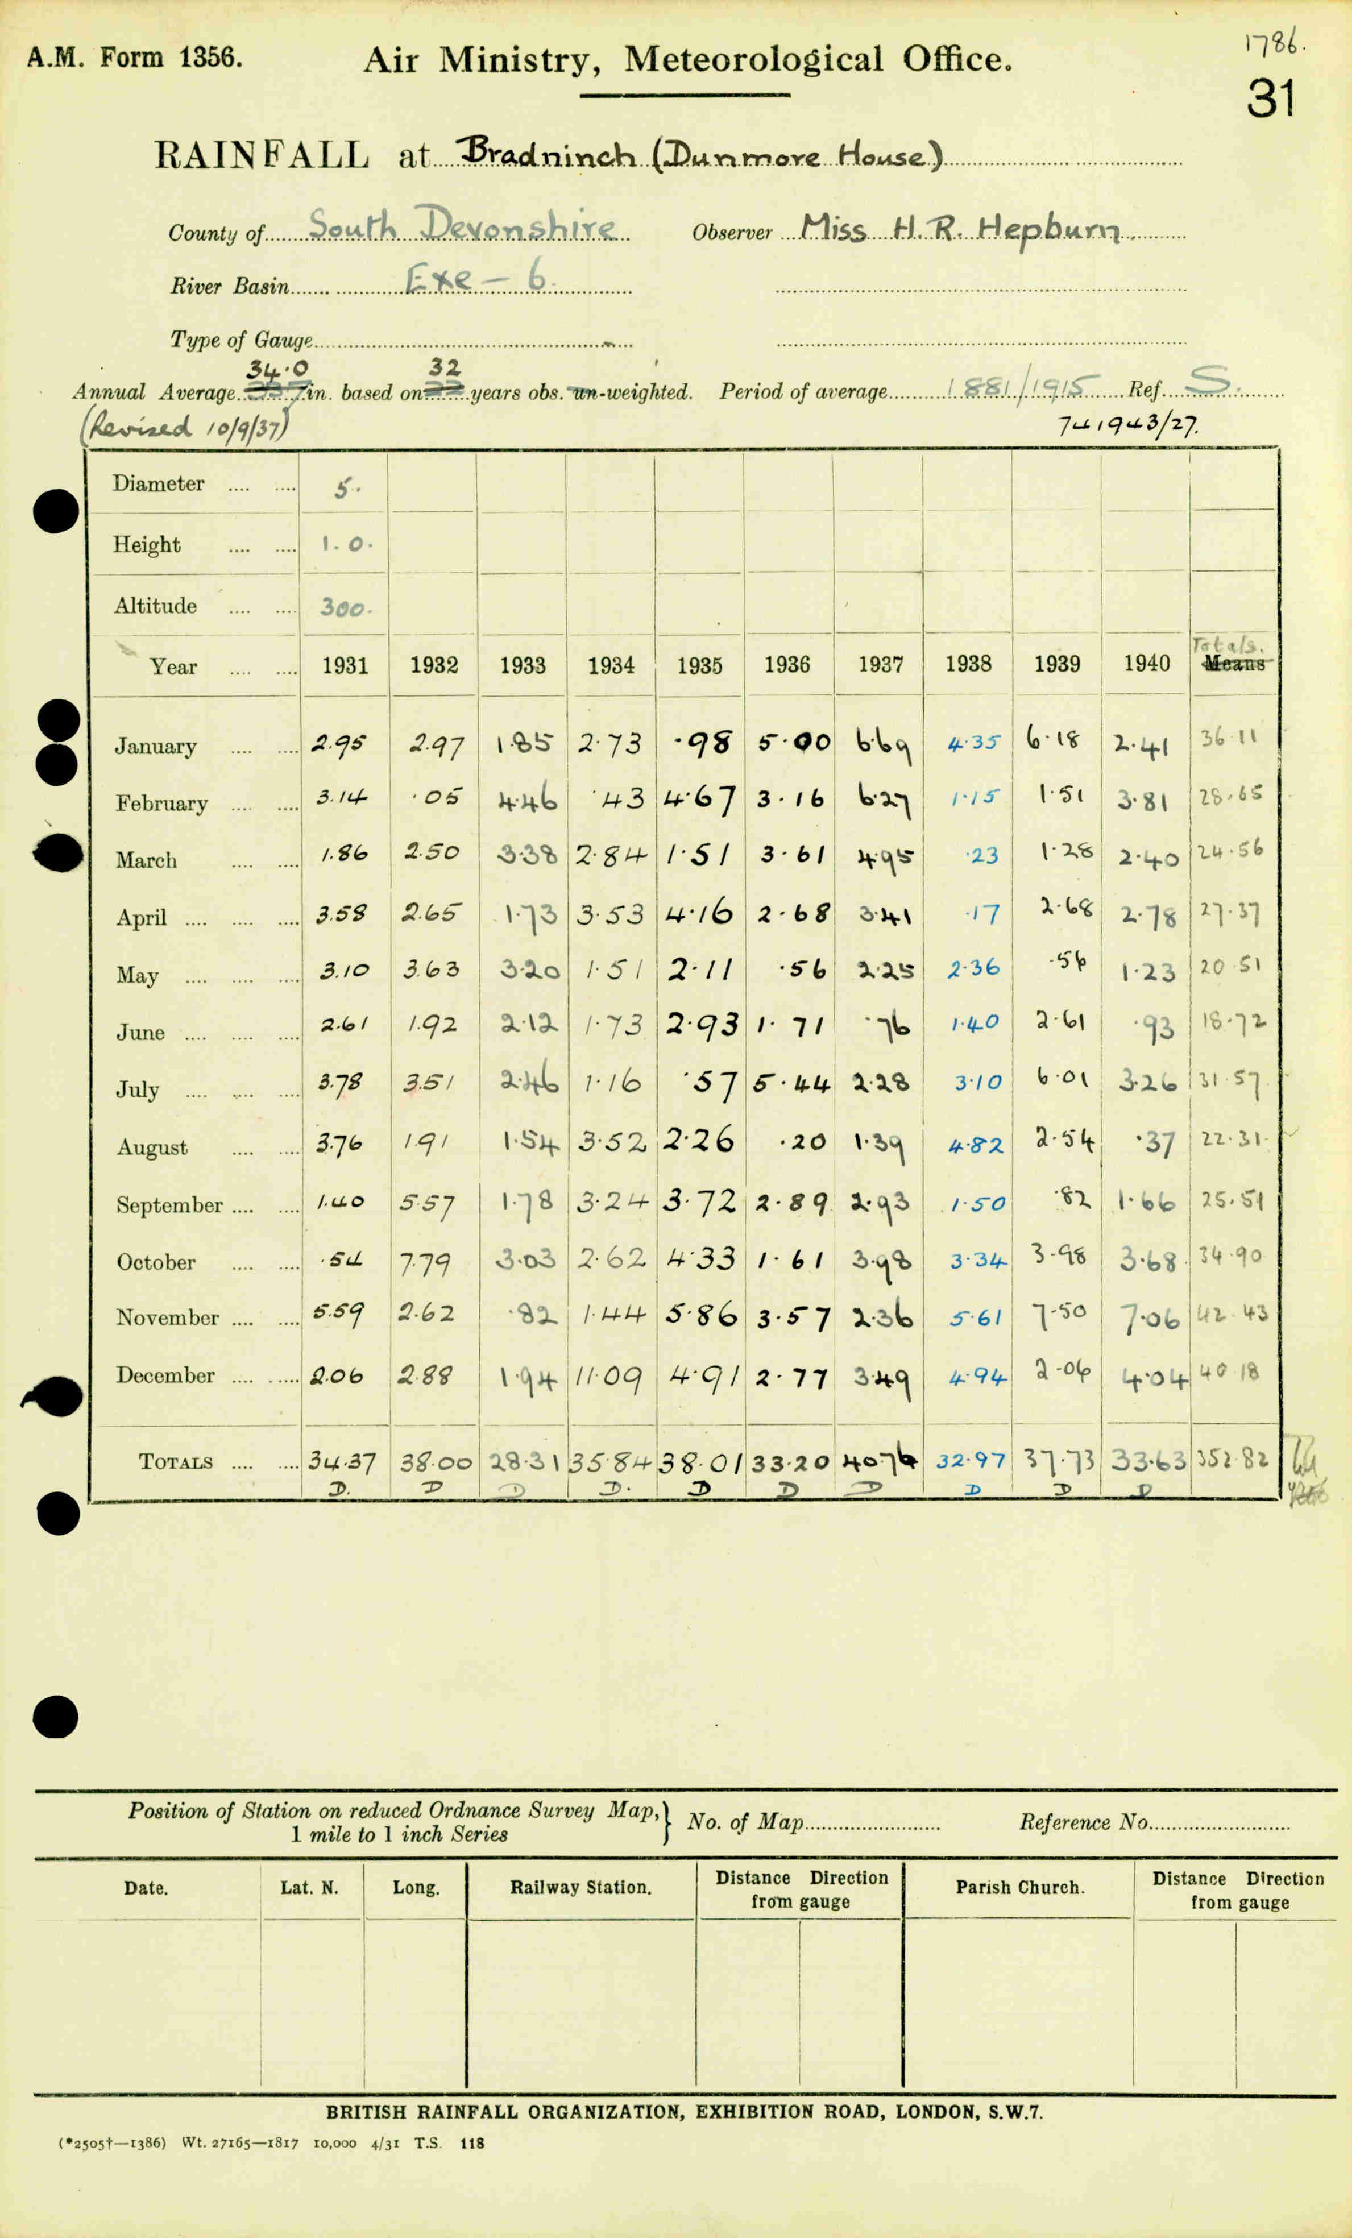 1786.
A.M. Form 1356. Air Ministry, Meteorological Office.
31
RAINFALL at Bradninch (Dunmore House)
County of South Devonshire Observer Miss H. R. Hepburn.
River Basin Exe - 6.
Type of Gauge
34.0 32
Annual Average in. based on years obs. un-weighted. Period of average 1881/1915 Ref. S.
(Revised 10/9/37) 741943/27.
Diameter 5.
Height 1.0.
Altitude 300.
Totals.
Year 1931 1932 1933 1934 1935 1936 1937 1938 1939 1940 Means
January 2.95 2.97 1.85 2.73 .98 5.00 6.69 4.35 6.18 2.41 36.11
February 3.14 .05 4.46 .43 4.67 3.16 6.27 1.15 1.51 3.81 28.65
March 1.86 2.50 3.38 2.84 1.51 3.61 4.95 .23 1.28 2.40 24.56
April 3.58 2.65 1.73 3.53 4.16 2.68 3.41 .17 2.68 2.78 27.37
May 3.10 3.63 3.20 1.51 2.11 .56 2.25 2.36 .56 1.23 20.51
June 2.61 1.92 2.12 1.73 2.93 1.71 .76 1.40 2.61 .93 18.72
July 3.78 3.51 2.46 1.16 .57 5.44 2.28 3.10 6.01 3.26 31.57
August 3.76 1.91 1.54 3.52 2.26 .20 1.39 4.82 2.54 .37 22.31
September 1.40 5.57 1.78 3.24 3.72 2.89 2.93 1.50 .82 1.66 25.51
October .54 7.79 3.03 2.62 4.33 1.61 3.98 3.34 3.98 3.68 34.90
November 5.59 2.62 .82 1.44 5.86 3.57 2.36 5.61 7.50 7.06 42.43
December 2.06 2.88 1.94 11.09 4.91 2.77 3.49 4.94 2.06 4.04 40.18
TOTALS 34.37 38.00 28.31 35.84 38.01 33.20 40.76 32.97 37.73 33.63 352.82
D. D D D. D D D D D D
Position of Station on reduced Ordnance Survey Map, } No. of Map Reference No.
1 mile to 1 inch Series
Date. Lat. N. Long. Railway Station. Distance Direction from gauge Parish Church. Distance Direction from gauge
BRITISH RAINFALL ORGANIZATION, EXHIBITION ROAD, LONDON, S.W.7.
(*2505†—1386) Wt. 27165—1817 10,000 4/31 T.S. 118